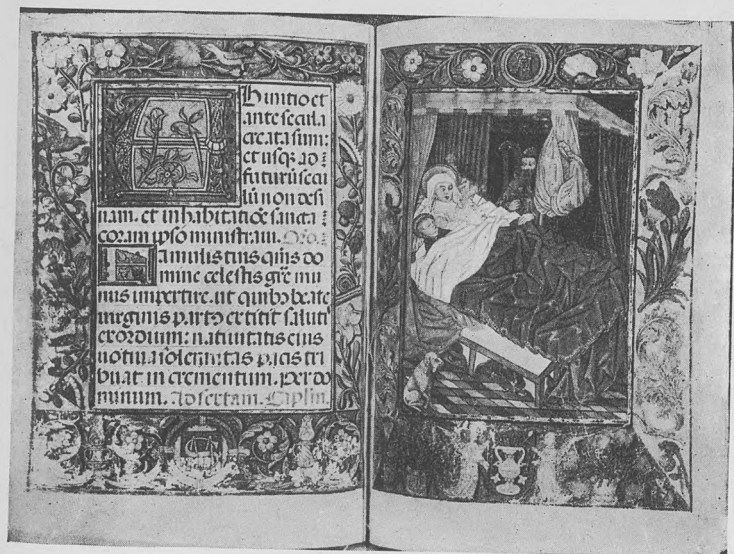 Ab initio et
ante secula
creata sum:
et usq3 ad
futurū secu
lū non desi
nam. et in habitatiōe sancta
coram ipso ministraui. Oro.
Famulis tuis quis do
mine celestis gr̄e mu
nus impertire. ut quibꝰ beate
virginis partꝰ extitit saluti
exordium: natiuitatis eius
uotiua solemnitas pacis tri
buat in crementum. Per do
minum. Ad sertam. Caplm.